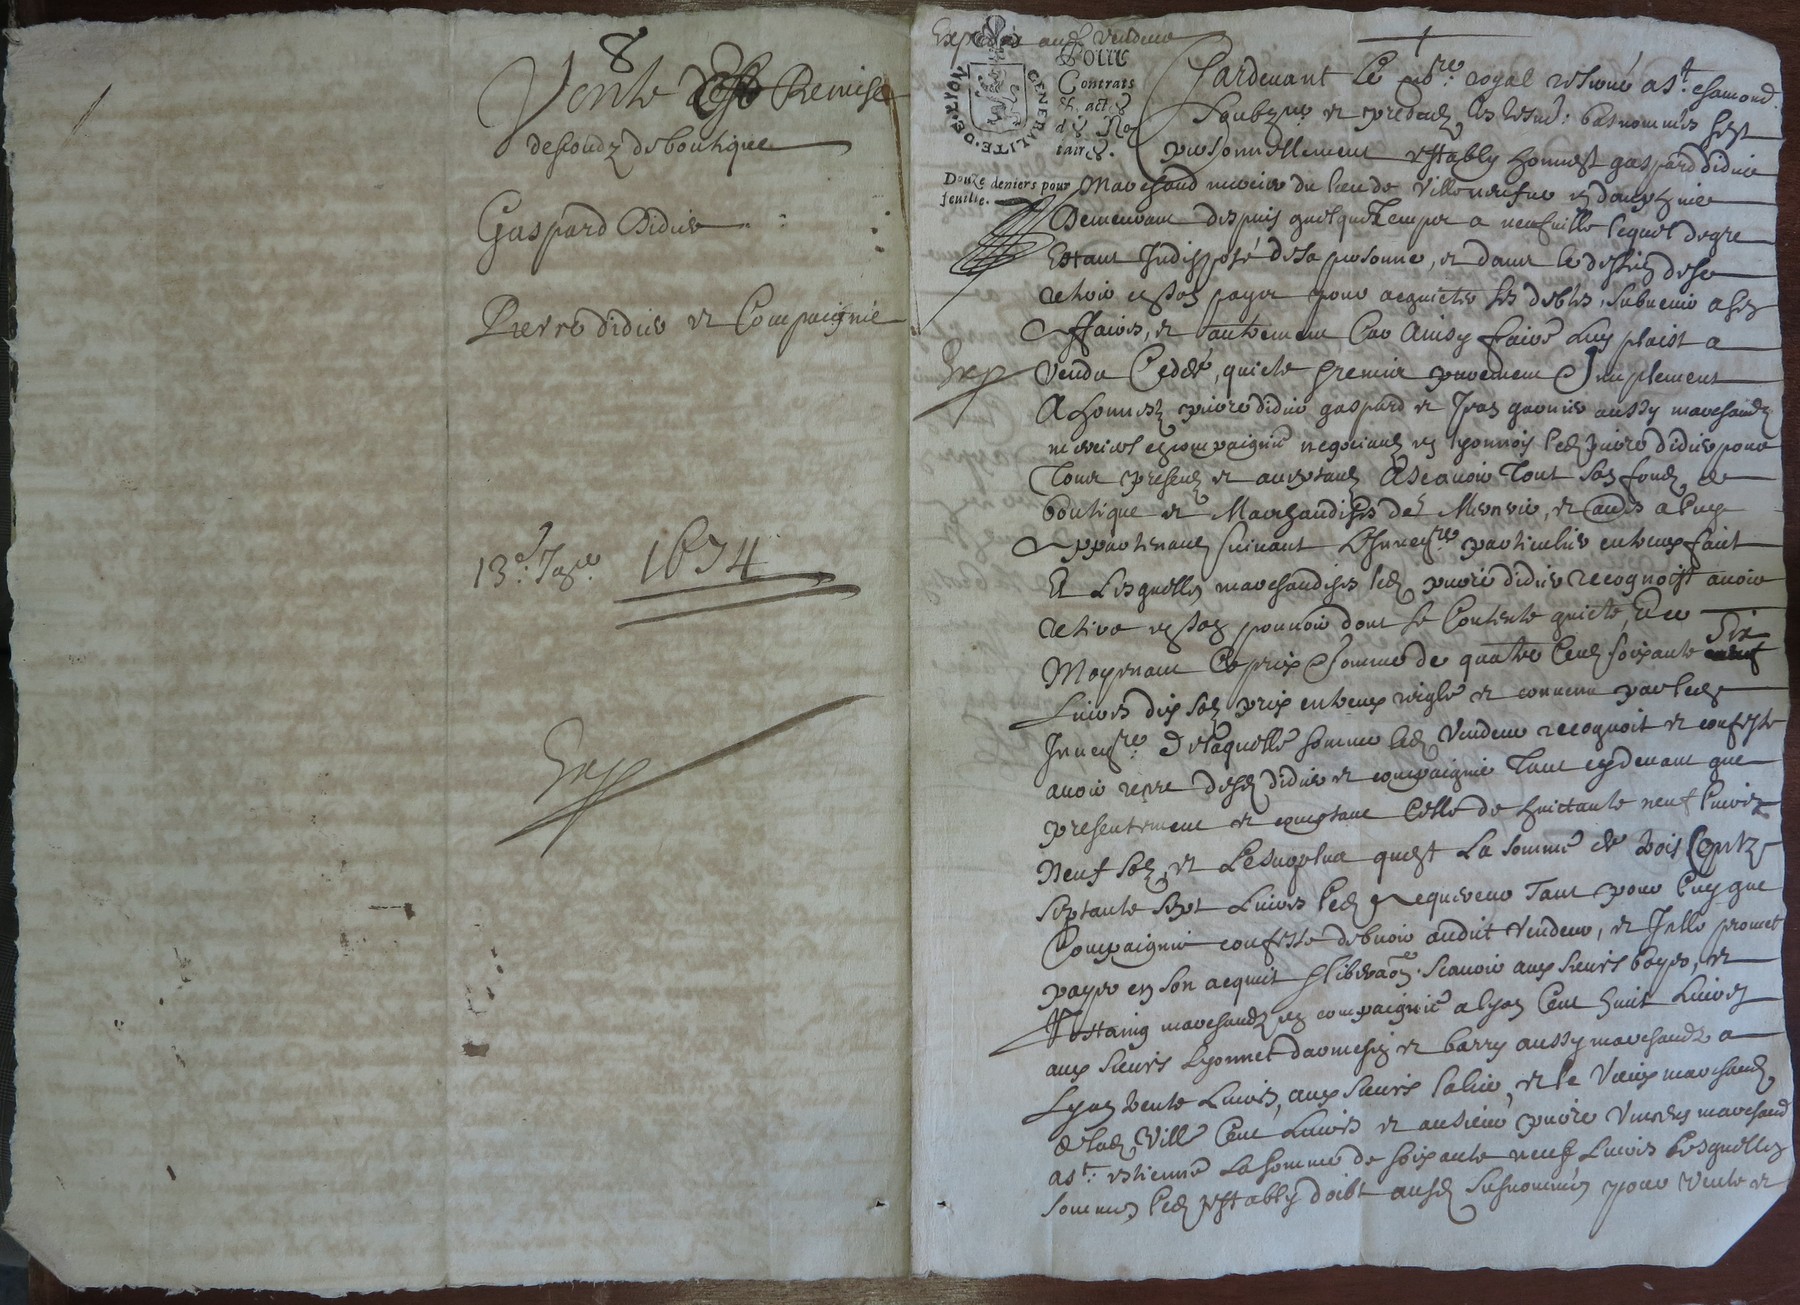 8
Vente Remise
de fondz de boutique
Gaspard Didier
Pierre didier et Compaignie
13e Janer 1674
Exp
Expedié aud vendeur
GENERALITE·DE·LYON
Pour
Contrats
& act
d No
taires.
Douze deniers pour
feuille.
Exp
Pardevant Le nore royal reservé a st chamond
soubzne et presentz les tesmz bas nommés s'est
personnellement estably honnest gaspard didier
Marchand mercier du lieu de Villeneufve en dauphiné
Demeurant despuis quelque temps a neufville lequel de gré
Estant Indisposé de sa personne, et dans le dessein de se
retirer en son pays pour acquicter ses debtes, subvenir a ses
affaires, et autrement Car Ainsy faire Luy plaist a
Vendu Cedé, quicté purement Simplement
A honnestz pierre didier gaspard et Jean garnier aussy marchandz
merciers en compaignie negociantz en lyonnois led pierre didier pour
Tous presentz et acceptantz Ascavoir Tout son fondz de
boutique et Marchandises de Mercerie, et autres a luy
Appartenantz suivant L'Inventre particulier entreux faict
Et Lesquelles marchandises led pierre didier recognoist avoir
retiré en son pouvoir dont se Contente quicte, Et ce
Moyenant Le prix & somme de quatre Centz soixante six
Livres dix solz prix entreux reiglé et convenu par led
Inventre De laquelle somme led Vendeur recognoit et confesse
avoir receu desd didier et compaignie Tant cydevant que
presentement et comptant Celle de huictante neuf livres
Neuf solz, et Le surplus quest La somme de trois Centz
septante sept Livres led acquereur Tant pour luy que
Compaignie confesse debvoir audit Vendeur, et Icelle promet
payer en son acquit & liberaon scavoir aux sieurs et
marchandz en compaignie a lyon Cent huit Livres
aux sieurs Lyonnet et barry aussy marchandz a
Lyon trente Livres, aux sieurs et le Vieux marchandz
de lad Ville Cent Livres et au sieur pierre marchand
a st: estienne La somme de soixante neuf Livres Lesquelles
sommes led estably doibt ausd susnommés pour Vente et